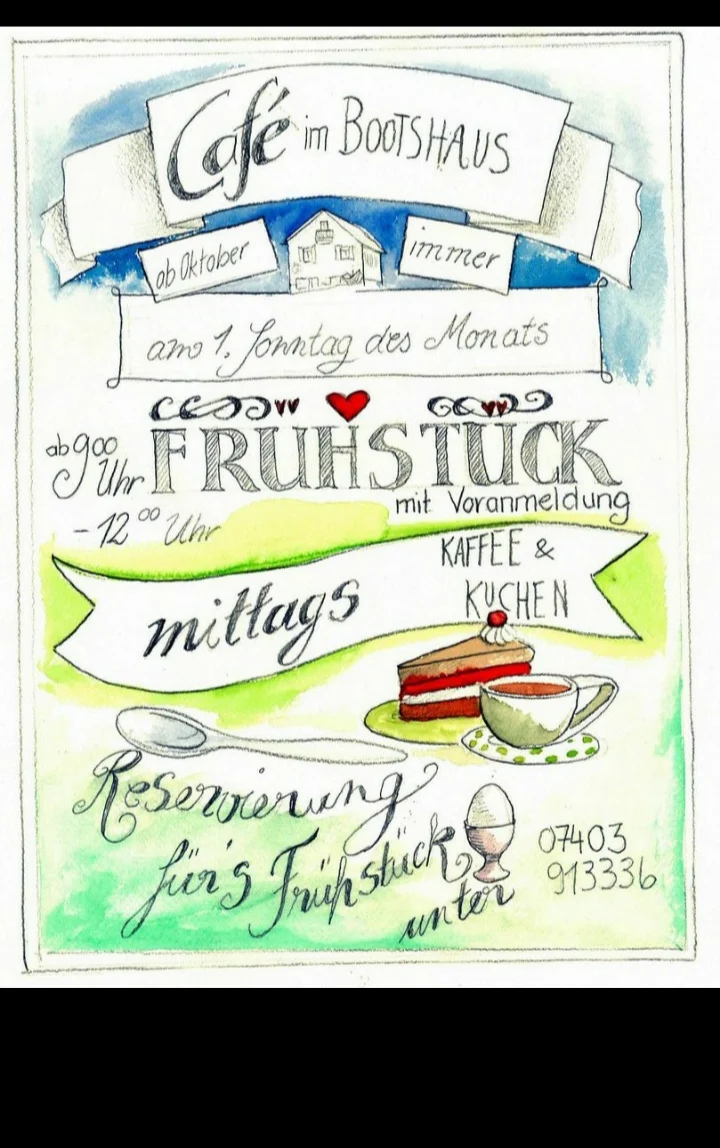 Café im BOOTSHAUS
ab Oktober
immer
am 1. Sonntag des Monats
FRÜHSTÜCK
ab 9 00
Uhr
- 12 00 Uhr
mit Voranmeldung
mittags
KAFFEE &
KUCHEN
Reservierung
für's Frühstück
unter
07403
913336